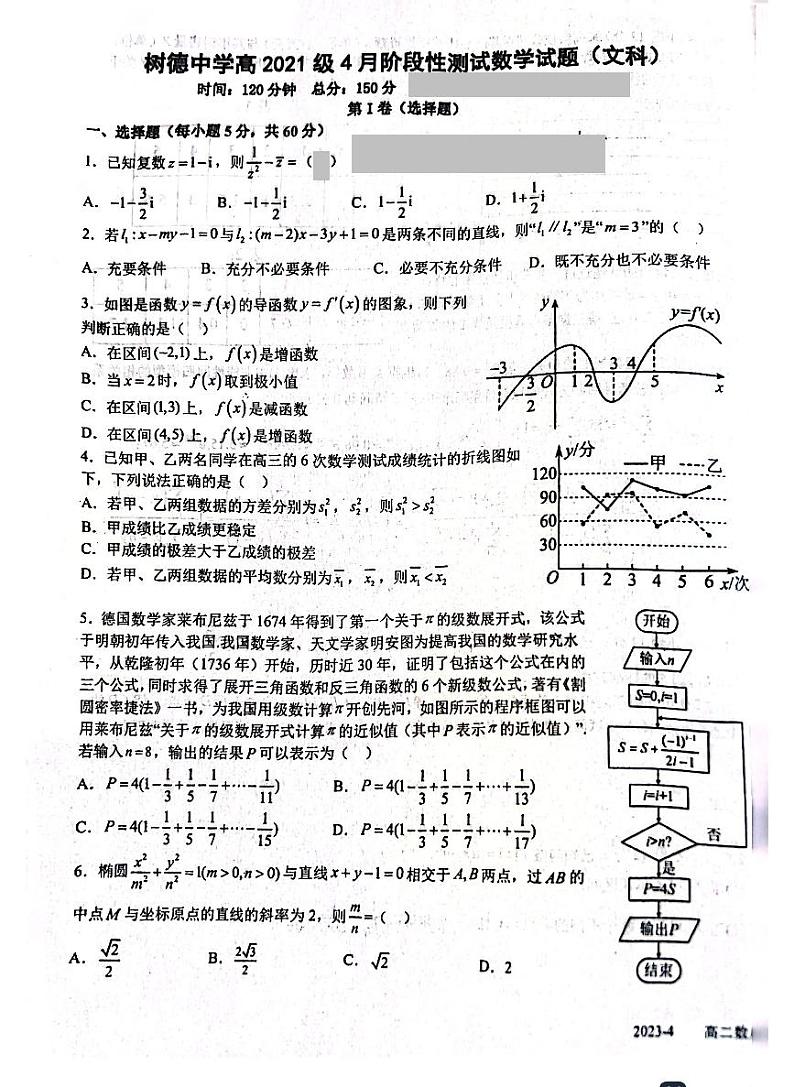 树德中学高2021级4月阶段性测试数学试题（文科）
时间：120分钟 总分：150分
第Ⅰ卷（选择题）
一、选择题（每小题5分，共60分）
1．已知复数z=1-i，则1/z²-z̄=（ ）
A．-1-3/2i B．-1+1/2i C．1-1/2i D．1+1/2i
2．若l₁:x-my-1=0与l₂:(m-2)x-3y+1=0是两条不同的直线，则“l₁∥l₂”是“m=3”的（ ）
A．充要条件 B．充分不必要条件 C．必要不充分条件 D．既不充分也不必要条件
3．如图是函数y=f(x)的导函数y=f′(x)的图象，则下列
判断正确的是（ ）
A．在区间(-2,1)上，f(x)是增函数
B．当x=2时，f(x)取到极小值
C．在区间(1,3)上，f(x)是减函数
D．在区间(4,5)上，f(x)是增函数
y
y=f′(x)
-3 -3/2 O 1 2 3 4 5 x
4．已知甲、乙两名同学在高三的6次数学测试成绩统计的折线图如
下，下列说法正确的是（ ）
A．若甲、乙两组数据的方差分别为s₁²，s₂²，则s₁²>s₂²
B．甲成绩比乙成绩更稳定
C．甲成绩的极差大于乙成绩的极差
D．若甲、乙两组数据的平均数分别为x̄₁，x̄₂，则x̄₁<x̄₂
y/分
甲 乙
120
90
60
30
O 1 2 3 4 5 6 x/次
5．德国数学家莱布尼兹于1674年得到了第一个关于π的级数展开式，该公式
于明朝初年传入我国.我国数学家、天文学家明安图为提高我国的数学研究水
平，从乾隆初年（1736年）开始，历时近30年，证明了包括这个公式在内的
三个公式，同时求得了展开三角函数和反三角函数的6个新级数公式，著有《割
圆密率捷法》一书，为我国用级数计算π开创先河，如图所示的程序框图可以
用莱布尼兹“关于π的级数展开式计算π的近似值（其中P表示π的近似值）”.
若输入n=8，输出的结果P可以表示为（ ）
A．P=4(1-1/3+1/5-1/7+⋯-1/11) B．P=4(1-1/3+1/5-1/7+⋯+1/13)
C．P=4(1-1/3+1/5-1/7+⋯-1/15) D．P=4(1-1/3+1/5-1/7+⋯+1/17)
开始
输入n
S=0,i=1
S=S+(-1)^(i-1)/(2i-1)
i=i+1
i>n?
否
是
P=4S
输出P
结束
6．椭圆x²/m²+y²/n²=1(m>0,n>0)与直线x+y-1=0相交于A,B两点，过AB的
中点M与坐标原点的直线的斜率为2，则m/n=（ ）
A．√2/2 B．2√3/2 C．√2 D．2
2023-4 高二数